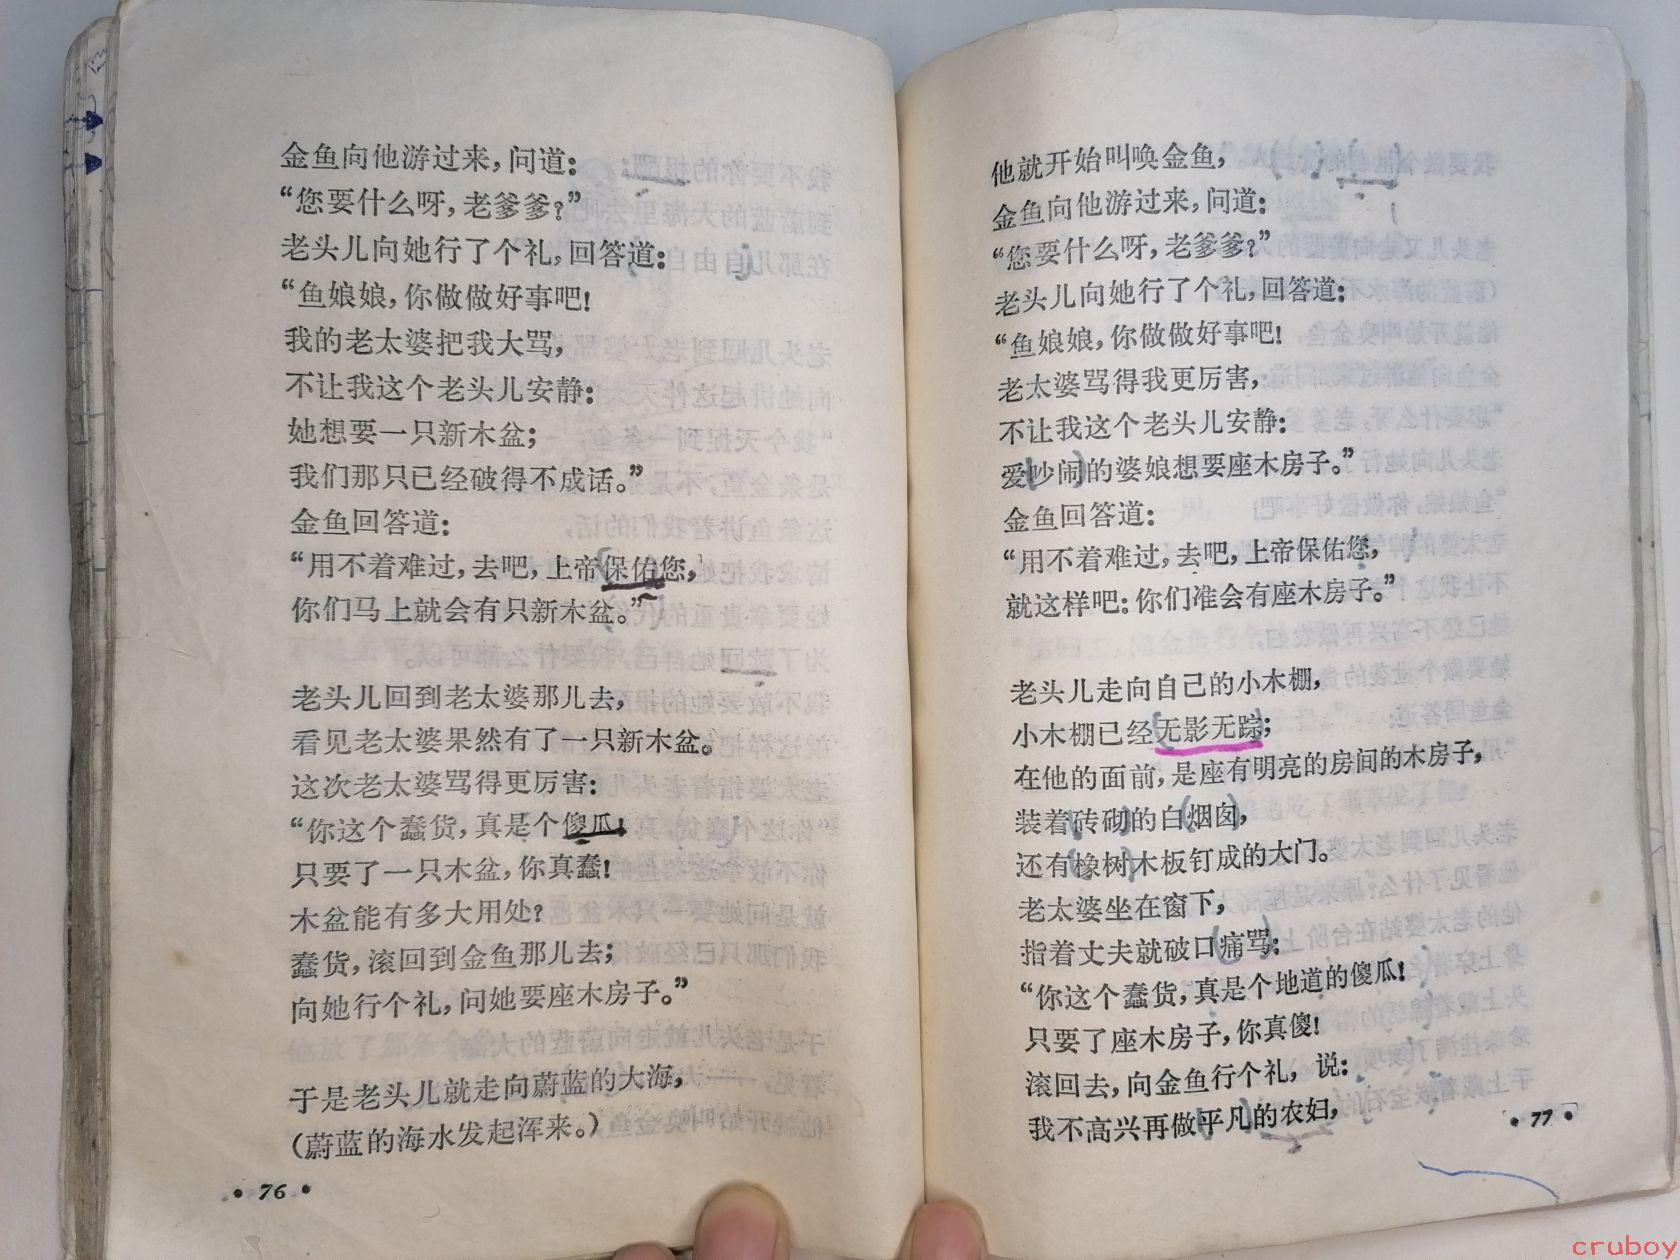 金鱼向他游过来，问道：
“您要什么呀，老爹爹？”
老头儿向她行了个礼，回答道：
“鱼娘娘，你做做好事吧！
我的老太婆把我大骂，
不让我这个老头儿安静：
她想要一只新木盆；
我们那只已经破得不成话。”
金鱼回答道：
“用不着难过，去吧，上帝保佑您，
你们马上就会有只新木盆。”
老头儿回到老太婆那儿去，
看见老太婆果然有了一只新木盆。
这次老太婆骂得更厉害：
“你这个蠢货，真是个傻瓜！
只要了一只木盆，你真蠢！
木盆能有多大用处？
蠢货，滚回到金鱼那儿去；
向她行个礼，问她要座木房子。”
于是老头儿就走向蔚蓝的大海，
（蔚蓝的海水发起浑来。）
• 76 •
他就开始叫唤金鱼，
金鱼向他游过来，问道：
“您要什么呀，老爹爹？”
老头儿向她行了个礼，回答道：
“鱼娘娘，你做做好事吧！
老太婆骂得我更厉害，
不让我这个老头儿安静：
爱吵闹的婆娘想要座木房子。”
金鱼回答道：
“用不着难过，去吧，上帝保佑您，
就这样吧：你们准会有座木房子。”
老头儿走向自己的小木棚，
小木棚已经无影无踪；
在他的面前，是座有明亮的房间的木房子，
装着砖砌的白烟囱，
还有橡树木板钉成的大门。
老太婆坐在窗下，
指着丈夫就破口痛骂：
“你这个蠢货，真是个地道的傻瓜！
只要了座木房子，你真傻！
滚回去，向金鱼行个礼，说：
我不高兴再做平凡的农妇，
• 77 •
cruboy